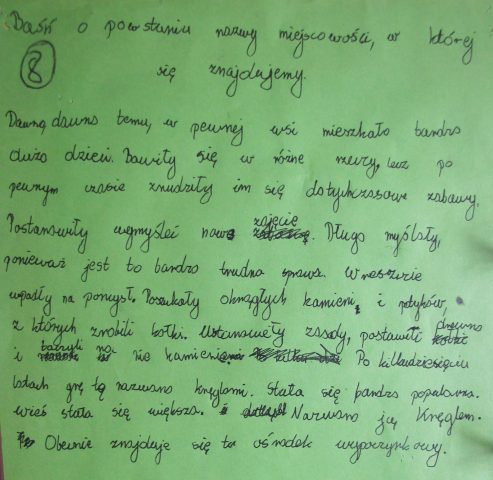 Baśń o powstaniu nazwy miejscowości, w której
8 się znajdujemy.
Dawno, dawno temu, w pewnej wsi mieszkało bardzo
dużo dzieci. Bawiły się w różne rzeczy, lecz po
pewnym czasie znudziły im się dotychczasowe zabawy.
Postanowiły wymyśleć nowe zajęcie. Długo myślały,
ponieważ jest to bardzo trudna sprawa. Wreszcie
wpadły na pomysł. Poszukały okrągłych kamieni, i patyków,
z których zrobili kołki. Ustanowiły zasady, postawili drewno
i na nie kamienie Po kilkudziesięciu
latach grę tą nazwano kręglami. Stała się bardzo popularna.
wieś stała się większa. Nazwano ją Kręglem.
Obecnie znajduje się tu ośrodek wypoczynkowy.